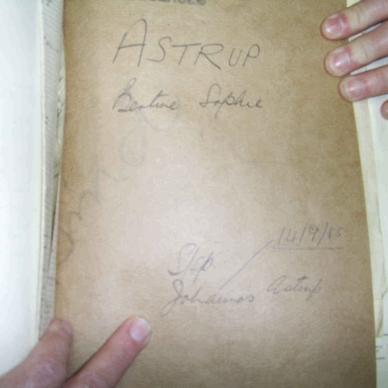 ASTRUP
Beatrice Sophie
14/9/65
Johannes Astrup